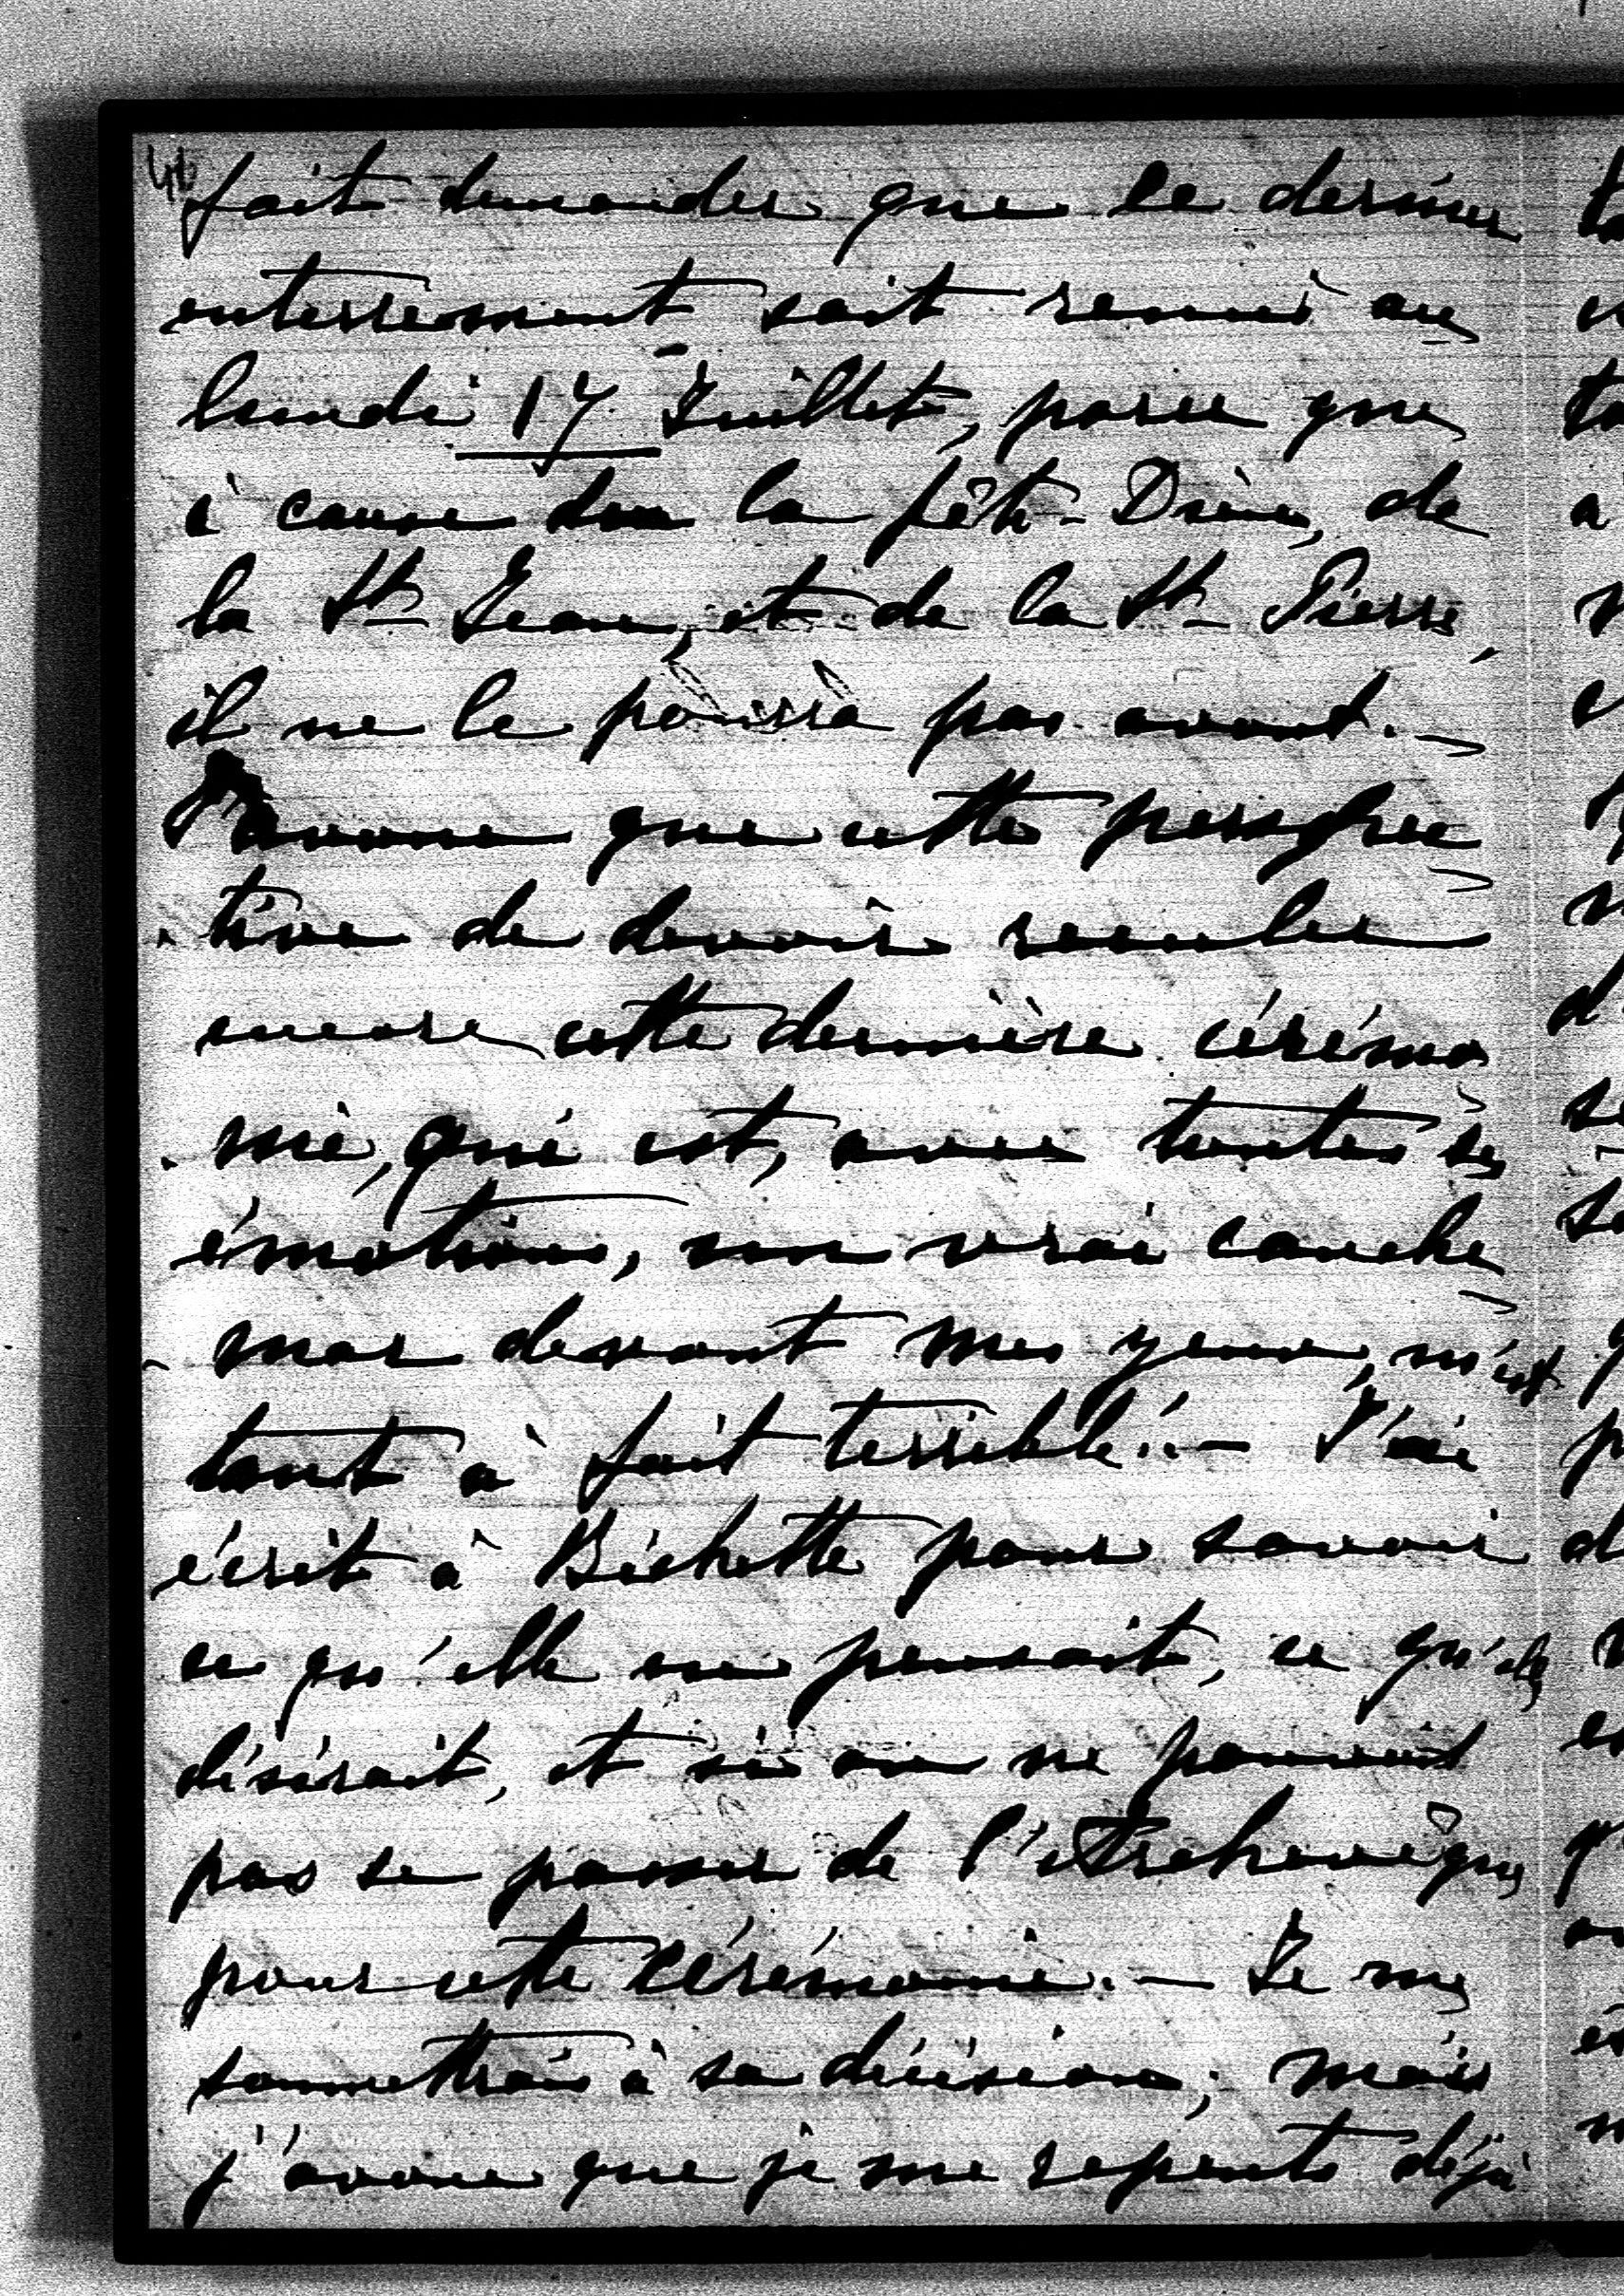 fait demander que le dernier
enterrement soit remis au
lundi 17 Juillet, parce que
à cause de la fête-Dieu, de
la St Jean, et de la St Pierre
il ne le pourra pas avant. -
J'avoue que cette perspec
tive de devoir reculer
encore cette dernière cérémo
nie, qui est, avec toutes ses
émotions, un vrai cauche
mar devant mes yeux, m'est
tout à fait terrible! - J'ai
écrit à Bichette pour savoir
ce qu'elle en pensait, ce qu'elle
désirait, et si on ne pouvait
pas se passer de
pour cette cérémonie. - Je me
soumettrai à sa décision; mais
j'avoue que je me repents déjà